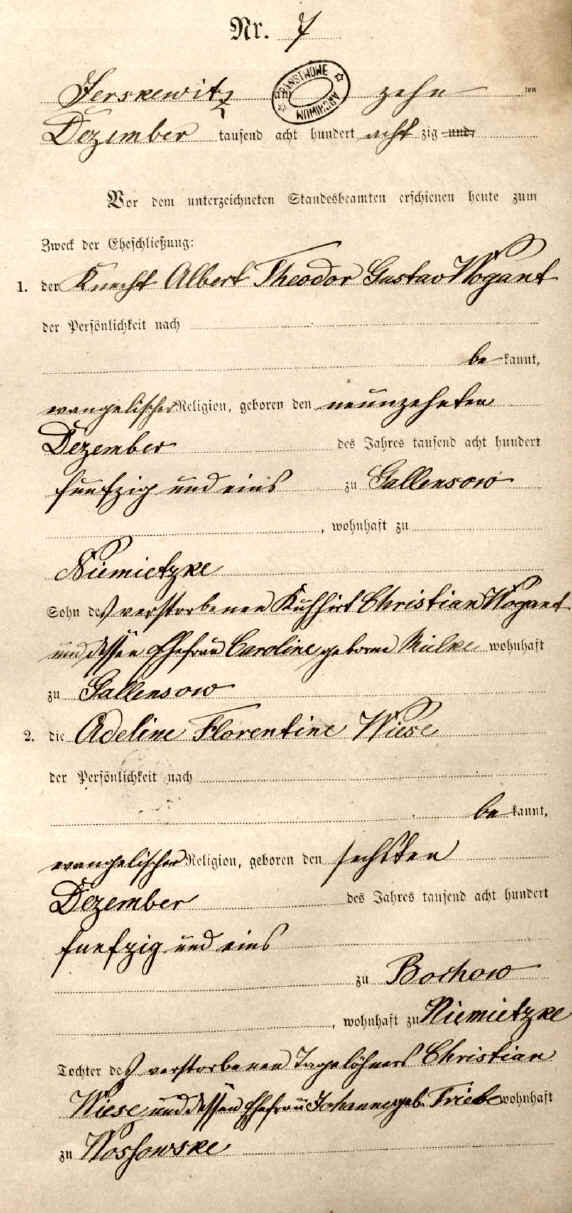 Nr. 7
Jerskewitz zehn ten
PAŃSTWOWE ARCHIWUM
Dezember tausend acht hundert acht zig und
Vor dem unterzeichneten Standesbeamten erschienen heute zum
Zweck der Eheschließung:
1. der Knecht Albert Theodor Gustav Wogant
der Persönlichkeit nach
be kannt,
evangelischer Religion, geboren den neunzehnten
Dezember des Jahres tausend acht hundert
funfzig und eins zu Gallensow
, wohnhaft zu
Niemietzke
Sohn des verstorbenen Kuhhirt Christian Wogant
und dessen Ehefrau Caroline geborne Mielke wohnhaft
zu Gallensow
2. die Adeline Florentine Wiese
der Persönlichkeit nach
be kannt,
evangelischer Religion, geboren den sechsten
Dezember des Jahres tausend acht hundert
funfzig und eins
zu Bochow
, wohnhaft zu Niemietzke
Tochter des verstorbenen Tagelöhners Christian
Wiese und dessen Ehefrau Johanne geb. Triebe wohnhaft
zu Wossowske